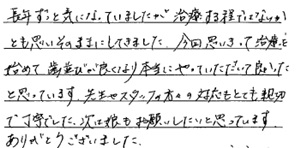 長年ずっと気になっていましたが治療する程ではないか
とも思いそのままにしてきました。今回思いきって治療を
始めて歯並びが良くなり本当にやっていただいて良かった
と思っています。先生やスタッフの方々の対応もとても親切
で丁寧でした。次は娘もお願いしたいと思っています。
ありがとうございました。